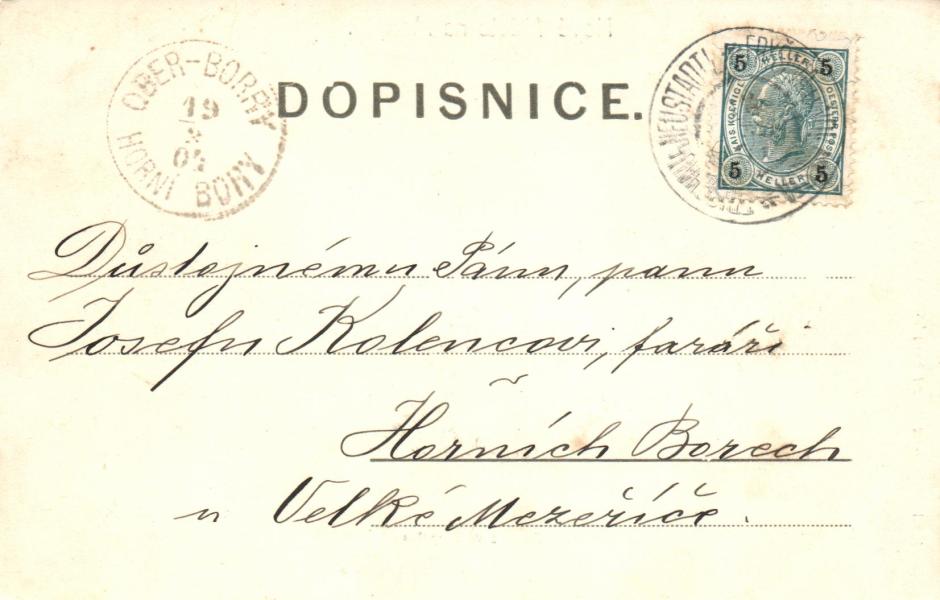 DOPISNICE.
OBER-BORRY
19
04
HORNI BORY
5 HELLER 5
KAIS. KOENIGL. OESTERR. POST
5 HELLER 5
Důstojnému Pánu, panu
Josefu Kolencovi, faráři
v
Horních Borech
u Velké Mezeříče.